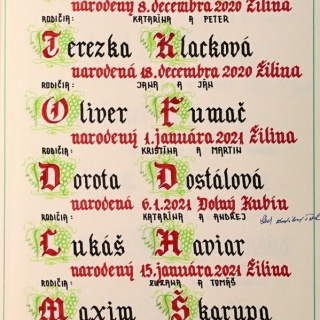 narodený 8. decembra 2020 Žilina
RODIČIA: KATARÍNA A PETER
Terezka Klacková
narodená 18. decembra 2020 Žilina
RODIČIA: JANA A JÁN
Oliver Fumač
narodený 1. januára 2021 Žilina
RODIČIA: KRISTÍNA A MARTIN
Dorota Dostálová
narodená 6.1.2021 Dolný Kubín
RODIČIA: KATARÍNA A ANDREJ
Lukáš Haviar
narodený 15. januára 2021 Žilina
RODIČIA: ZUZANA A TOMÁŠ
Maxim Škarupa